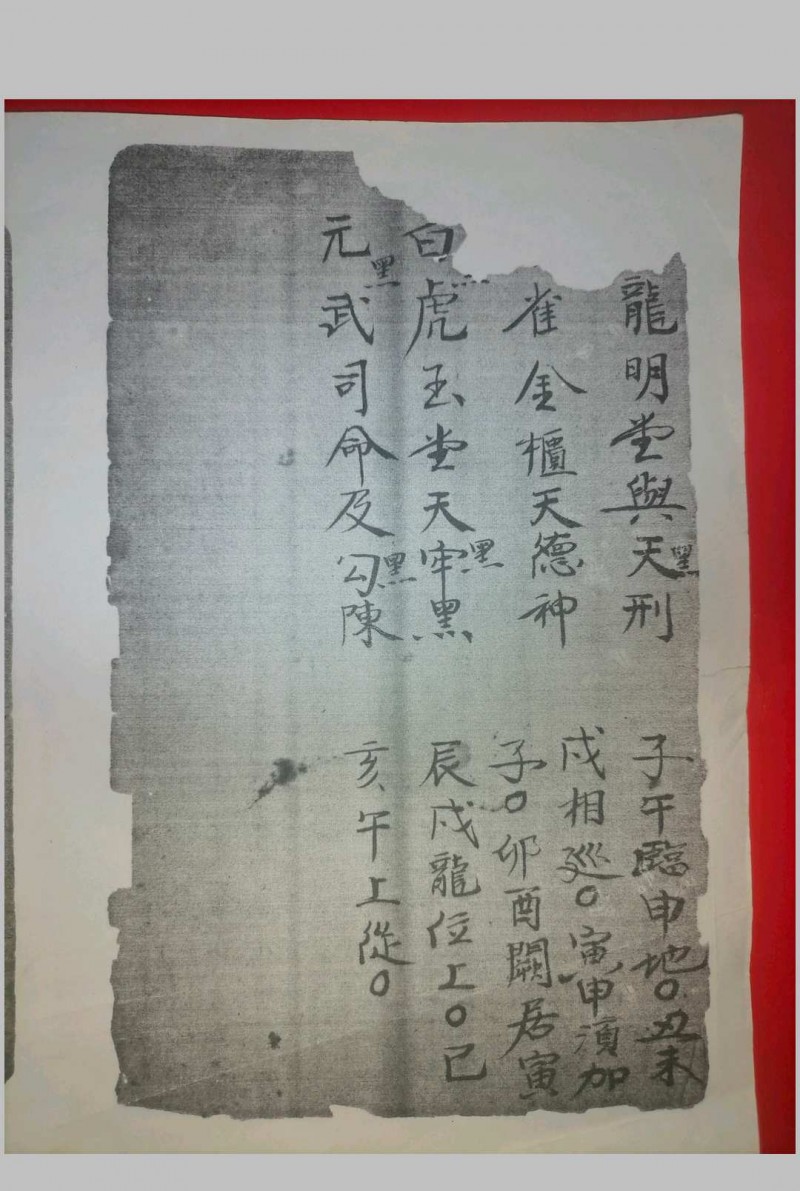 龍明堂與天刑
黑
雀金櫃天德神
白虎玉堂天牢黑
黑
元武司命及勾陳
黑
黑
子午臨申地〇丑未
戌相廵〇寅申湏加
子〇卯酉闕居寅
辰戌龍位上〇巳
亥午上從〇